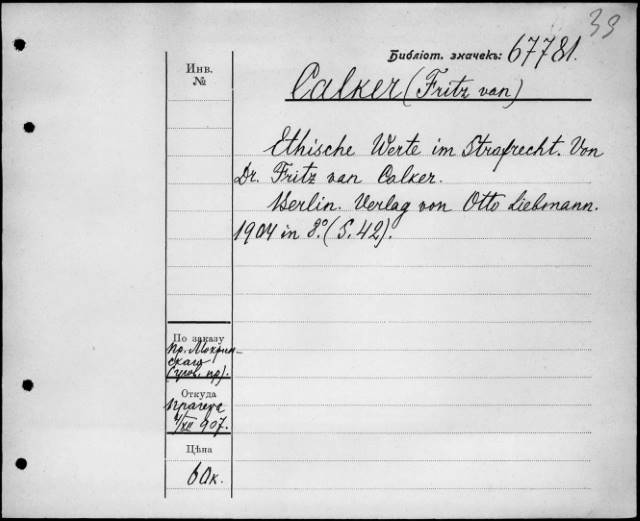 33
Библіот. значекъ: 67781.
Инв.
№
Calker (Fritz van)
Ethische Werte im Strafrecht. Von
Dr. Fritz van Calker.
Berlin. Verlag von Otto Liebmann.
1904 in 8.° (S. 42).
По заказу
пр. Мокрин-
скаго
(угол. пр).
Откуда
Прагера
/XII 907.
Цѣна
60к.